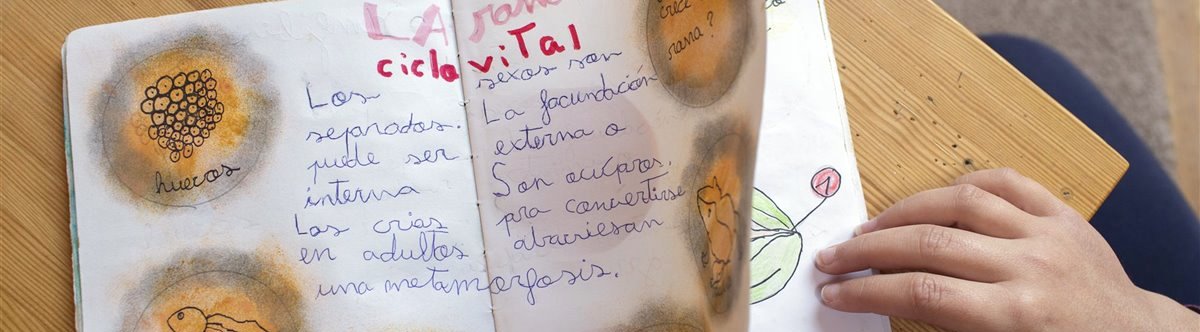 LA rana
ciclo vital
Los sexos son
separados. La facundación
puede ser externa o
interna Son ovíparos.
Las crias pra convertirse
en adultos abacriesan
una metamorfosis.
huevos
rana?
1